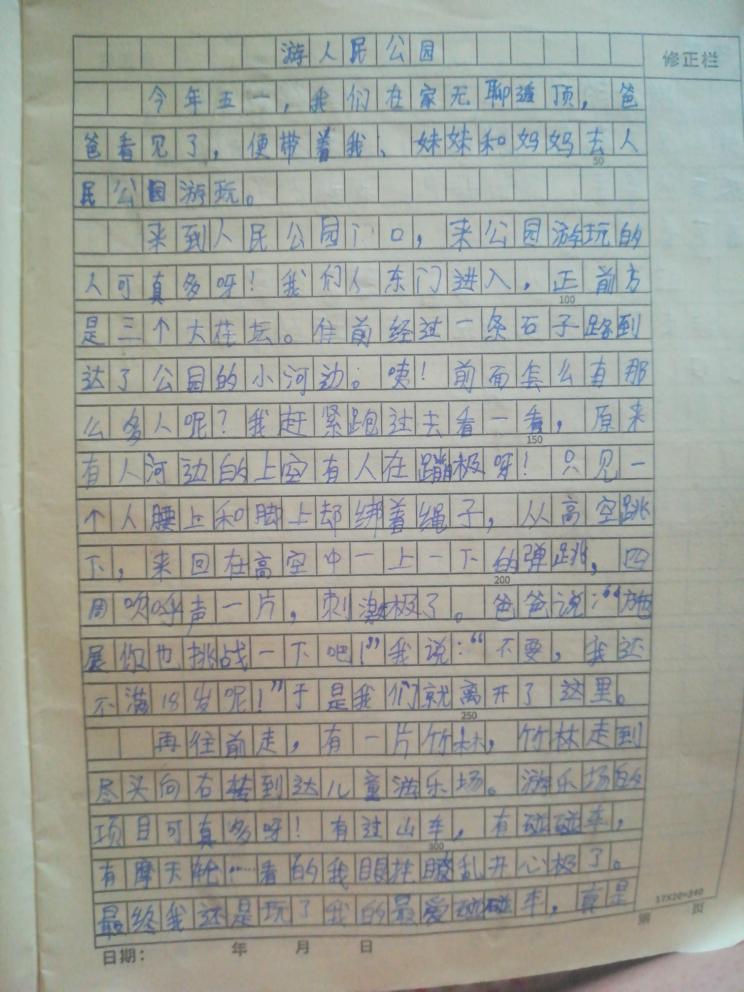 游人民公园
修正栏
今年五一，我们在家无聊透顶，爸
爸看见了，便带着我、妹妹和妈妈去人
50
民公园游玩。
来到人民公园门口，来公园游玩的
人可真多呀！我们从东门进入，正前方
100
是三个大花坛。往前经过一条石子路到
达了公园的小河边。咦！前面怎么有那
么多人呢？我赶紧跑过去看一看，原来
150
有人河边的上空有人在蹦极呀！只见一
个人腰上和脚上却绑着绳子，从高空跳
下，来回在高空中一上一下的弹跳，四
200
周欢呼声一片，刺激极了。爸爸说：“施
展你也挑战一下吧！”我说：“不要，我还
不满18岁呢！”于是我们就离开了这里。
250
再往前走，有一片竹林，竹林走到
尽头向右转到达儿童游乐场。游乐场的
项目可真多呀！有过山车，有碰碰车，
300
有摩天轮……看的我眼花瞭乱开心极了。
最终我还是玩了我的最爱碰碰车，真是
17X20=340
第 页
日期： 年 月 日